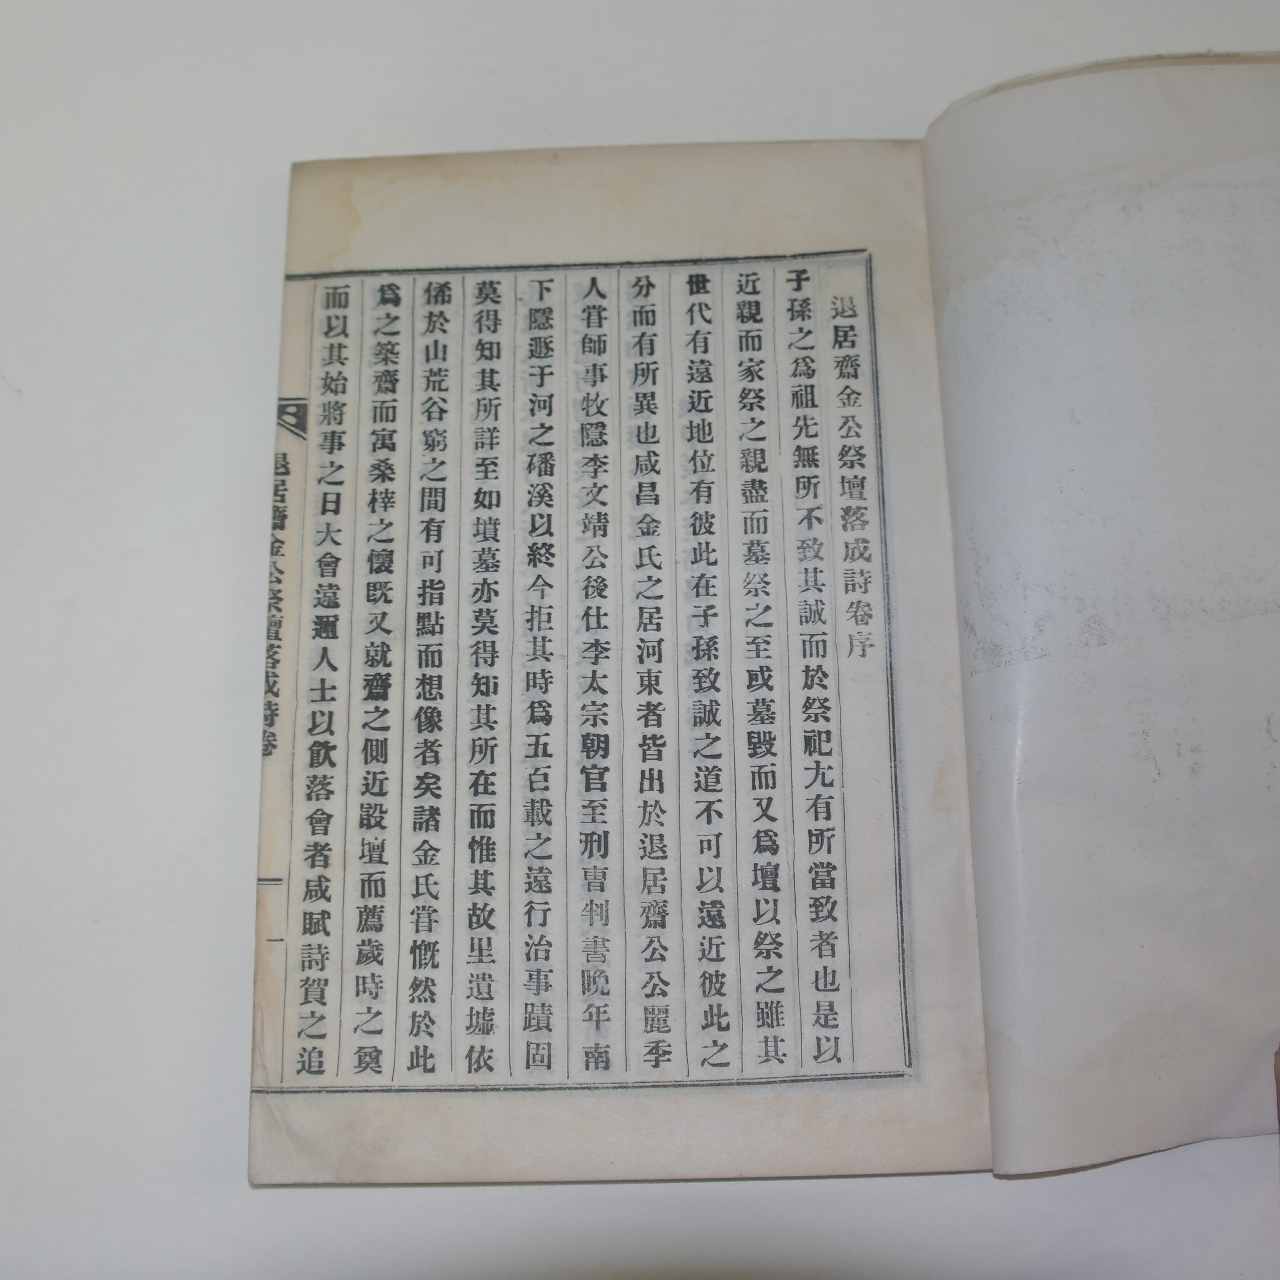 退居齋金公祭壇落成詩卷序
子孫之爲祖先無所不致其誠而於祭祀尤有所當致者也是以
近親而家祭之親盡而墓祭之至或墓毀而又爲壇以祭之雖其
世代有遠近地位有彼此在子孫致誠之道不可以遠近彼此之
分而有所異也咸昌金氏之居河東者皆出於退居齋公公麗季
人甞師事牧隱李文靖公後仕李太宗朝官至刑曺判書晩年南
下隱遯于河之磻溪以終今拒其時爲五百載之遠行治事蹟固
莫得知其所詳至如墳墓亦莫得知其所在而惟其故里遺墟依
俙於山荒谷窮之間有可指點而想像者矣諸金氏甞慨然於此
爲之築齋而寓桑梓之懷既又就齋之側近設壇而薦歲時之奠
而以其始將事之日大會遠邇人士以飮落會者咸賦詩賀之追
退居齋金公祭壇落成詩卷
一